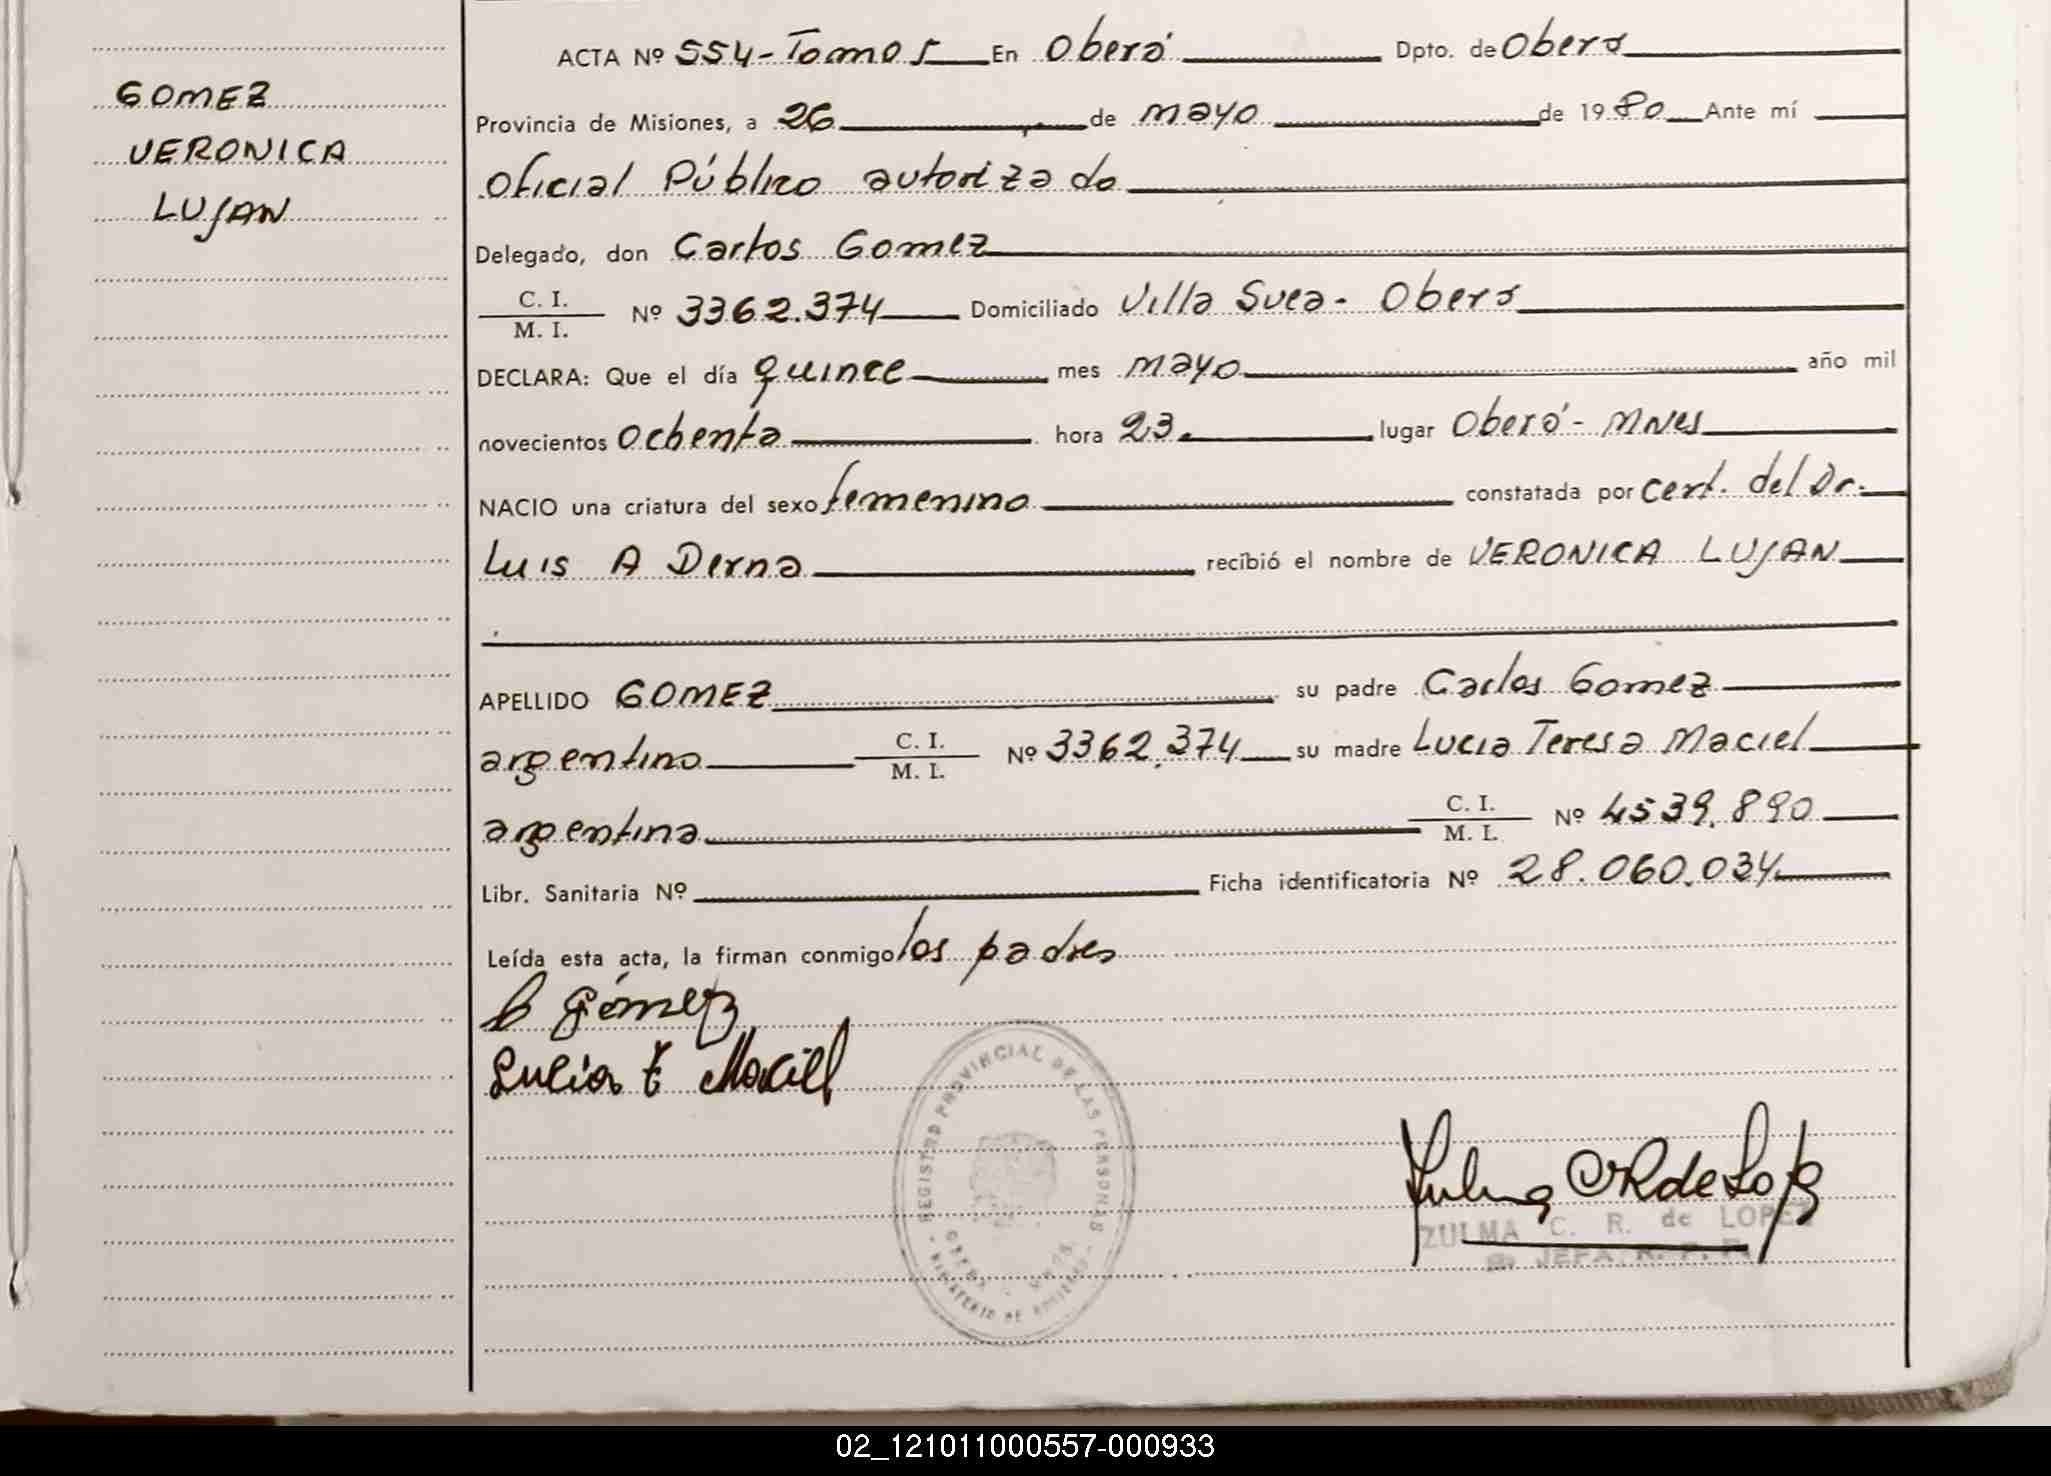 GOMEZ
VERONICA
LUJAN
ACTA Nº 554-Tomo 5 En Oberá Dpto. de Obera
Provincia de Misiones, a 26 de mayo de 1980 Ante mí
Oficial Público autorizado
Delegado, don Carlos Gomez
C. I.
M. I. Nº 3362.374 Domiciliado Villa Svea - Obera
DECLARA: Que el día quince mes mayo año mil
novecientos ochenta hora 23. lugar Oberá - Mnes
NACIO una criatura del sexo femenino constatada por cert. del Dr.
Luis A Derna recibió el nombre de VERONICA LUJAN
APELLIDO GOMEZ su padre Carlos Gomez
argentino C. I.
M. I. Nº 3362.374 su madre Lucia Teresa Maciel
argentina C. I.
M. I. Nº 4539.890
Libr. Sanitaria Nº Ficha identificatoria Nº 28.060.034
Leída esta acta, la firman conmigo los padres
C Gómez
Lucia T Maciel
REGISTRO PROVINCIAL DE LAS PERSONAS
MINISTERIO DE GOBIERNO
Zulma C R de Lopez
ZULMA C. R. de LOPEZ
JEFA R. P. P.
02_121011000557-000933